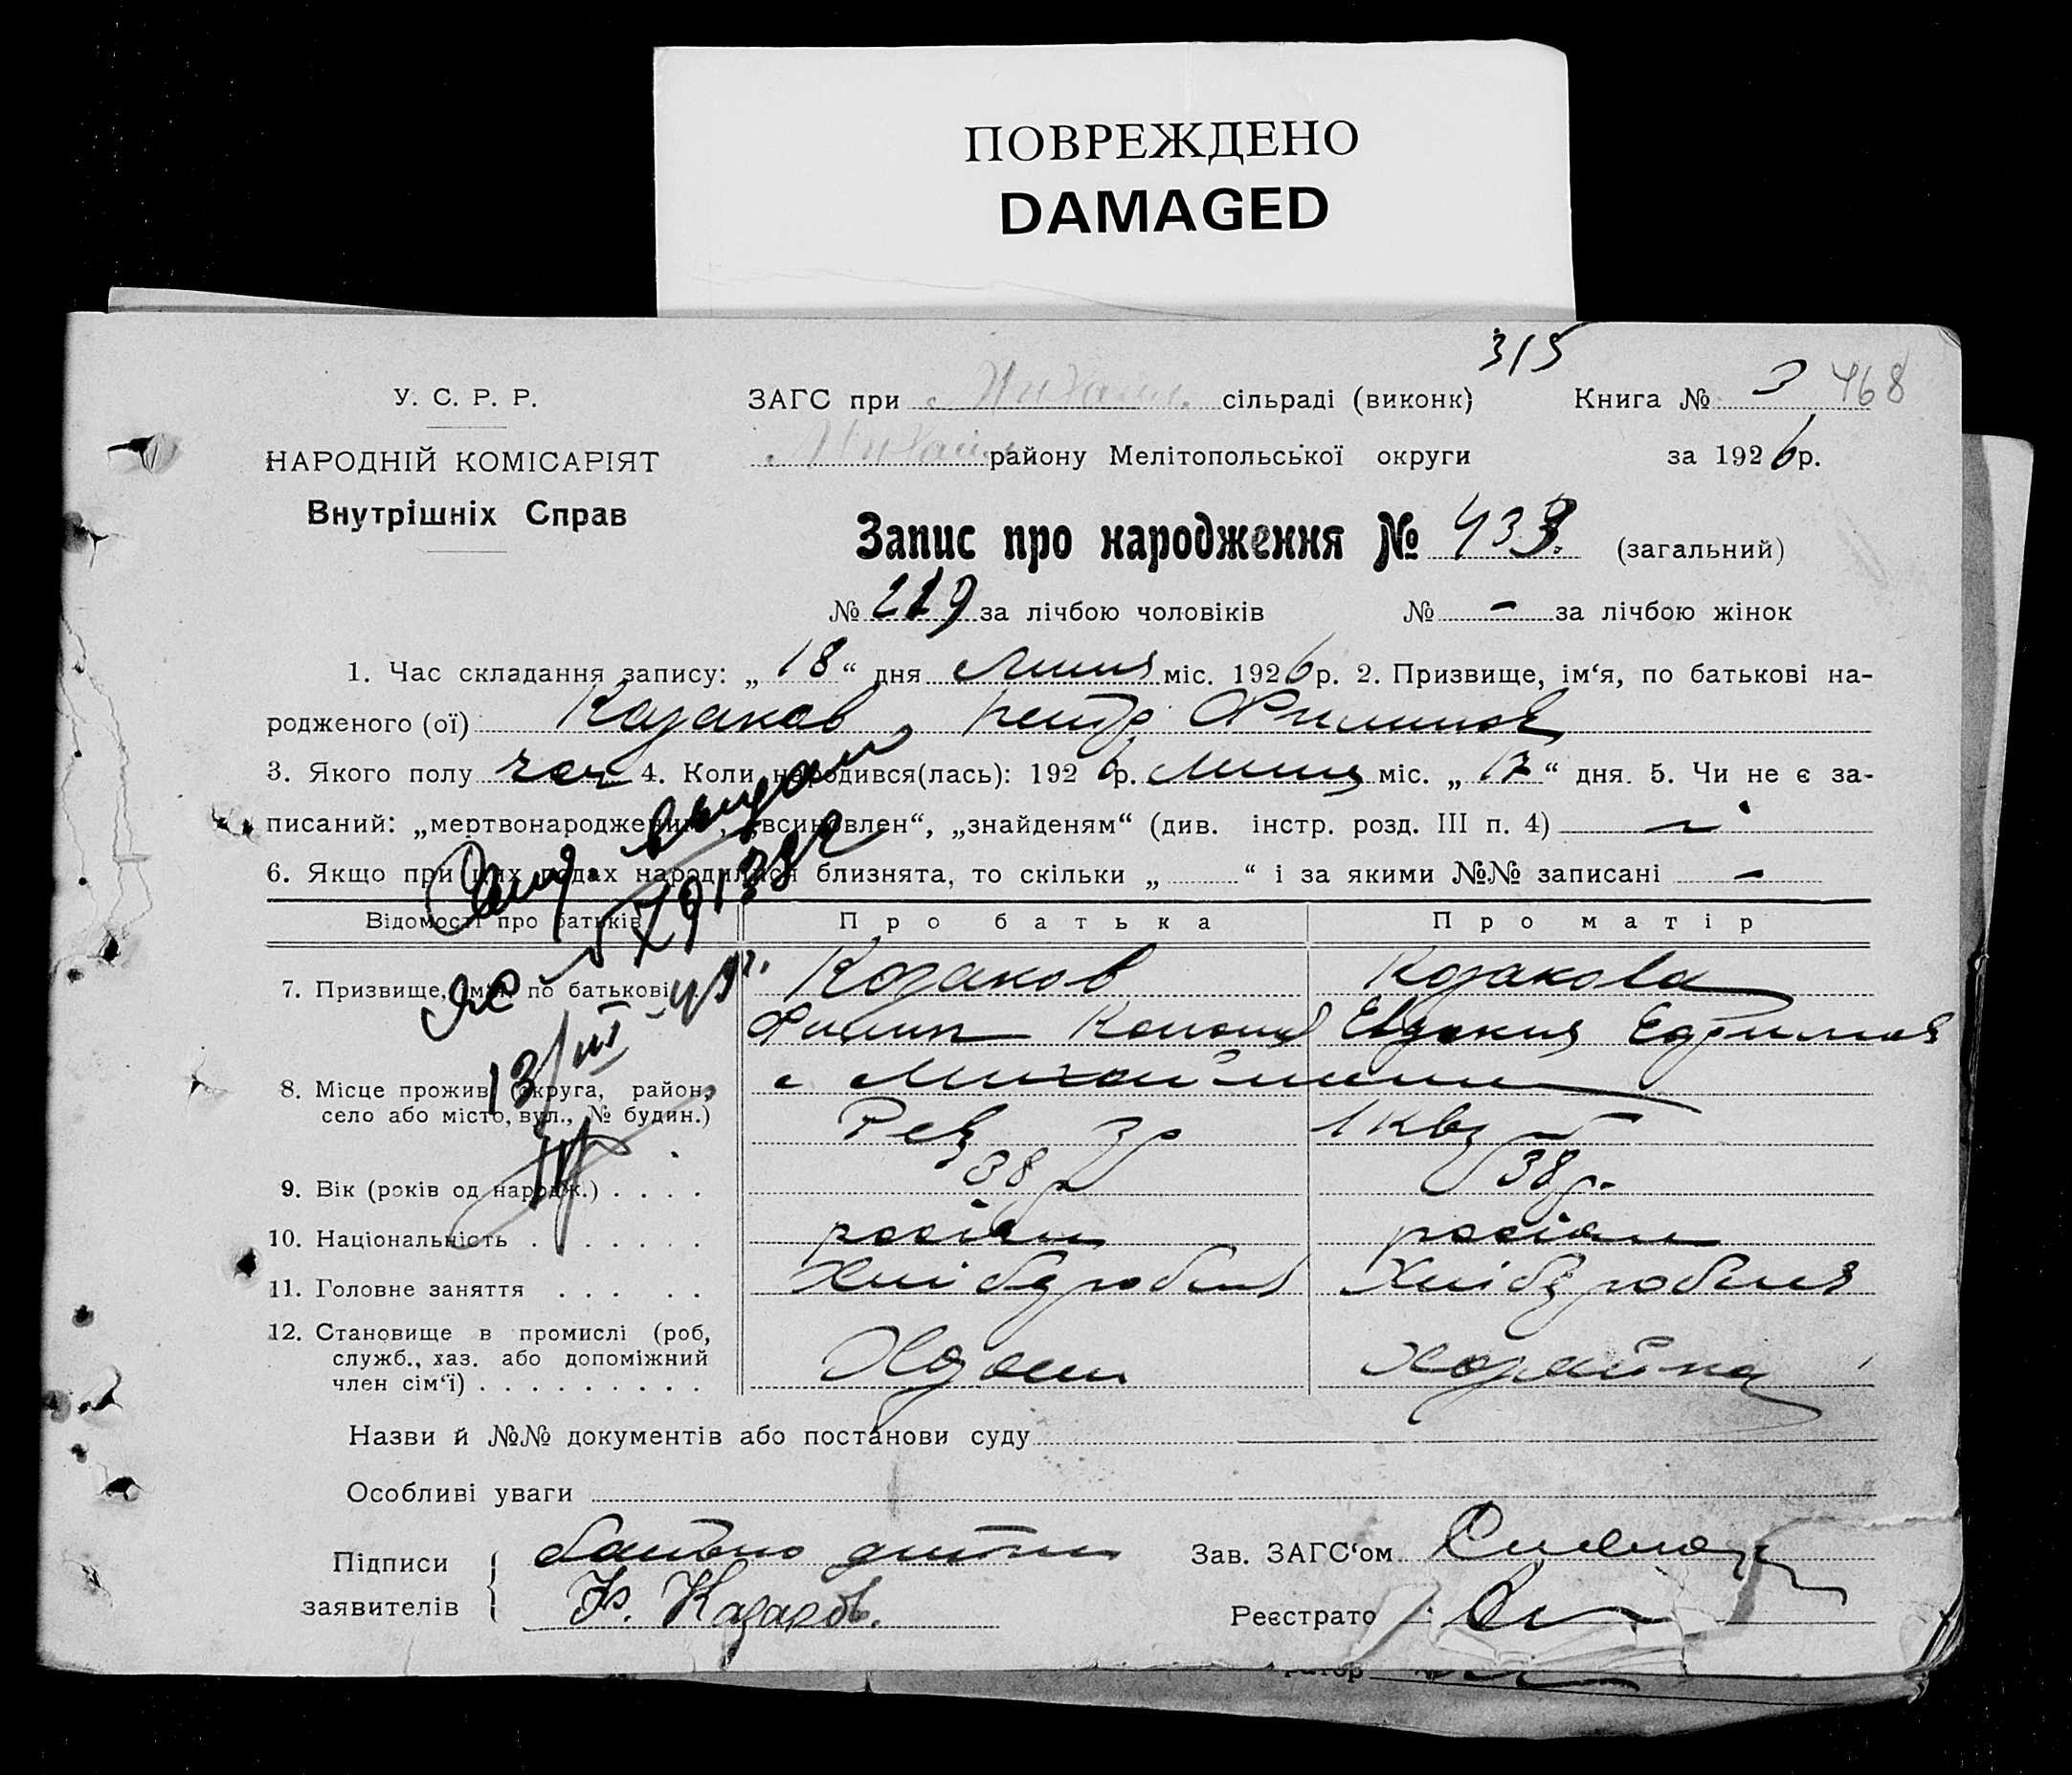 ПОВРЕЖДЕНО
DAMAGED
315
У. С. Р. Р.
ЗАГС при сільраді (виконк) Книга № 3 468
НАРОДНІЙ КОМІСАРІЯТ
району Мелітопольської округи за 1926 р.
Внутрішніх Справ
Запис про народження № 433. (загальний)
№ 219 за лічбою чоловіків № - за лічбою жінок
1. Час складання запису: „ 18 “ дня Липня міс. 1926 р. 2. Призвище, ім‘я, по батькові на-
родженого (ої) Казаков Петр Филипов
3. Якого полу чол 4. Коли народився(лась): 1926 р. Липня міс. „ 17 “ дня. 5. Чи не є за-
писаний: „мертвонароджений“, „всиновлен“, „знайденям“ (див. інстр. розд. III п. 4) -
6. Якщо при цих родах народилися близнята, то скільки „ “ і за якими №№ записані -
Відомості про батьків Про батька Про матір
7. Призвище, ім‘я, по батькові Козаков Козакова
Филип Евдокия
8. Місце прожив. (округа, район, с Михайлівка
село або місто, вул., № будин.)
9. Вік (років од народж.) . . . . 38 р 38 р.
10. Національність . . . . . . . росіян росіян
11. Головне заняття . . . . . Хлібороб Хлібороб
12. Становище в промислі (роб,
служб., хаз. або допоміжний
член сім‘ї) . . . . . . . . . Хозяїн Хозяйка
Назви й №№ документів або постанови суду
Особливі уваги
Підписи батько дитини Зав. ЗАГС‘ом
заявителів Ф. Казаков. Реєстрато